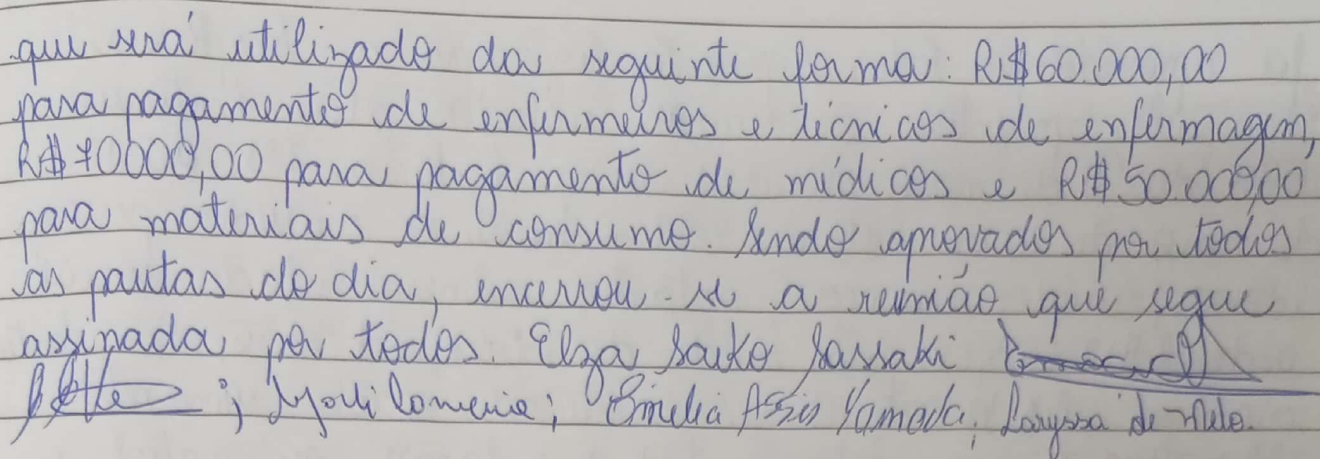 que será utilizado da seguinte forma: R$60.000,00
para pagamento de enfermeiros e técnicos de enfermagem,
R$70000,00 para pagamento de médicos e R$50.000,00
para materiais de consumo. Sendo aprovados por todos
as pautas do dia, encerrou-se a reunião que segue
assinada por todos. Elza Saiko Sassaki
; ; Emelia Assis Yamada; Laryssa de Melo.